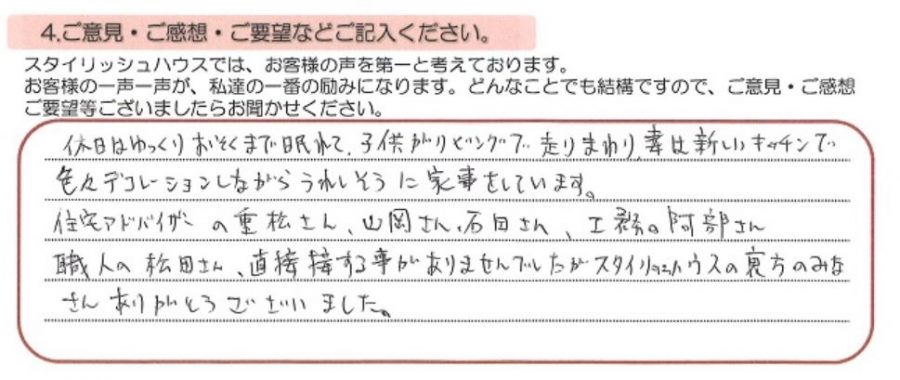 4.ご意見・ご感想・ご要望などご記入ください。
スタイリッシュハウスでは、お客様の声を第一と考えております。
お客様の一声一声が、私達の一番の励みになります。どんなことでも結構ですので、ご意見・ご感想
ご要望等ございましたらお聞かせください。
休日はゆっくりおそくまで眠れて、子供がリビングで走りまわり、妻は新しいキッチンで
色々デコレーションしながらうれしそうに家事をしています。
住宅アドバイザーの重松さん、山岡さん、石田さん、工務の阿部さん
職人の松田さん、直接接する事がありませんでしたがスタイリッシュハウスの裏方のみな
さんありがとうございました。